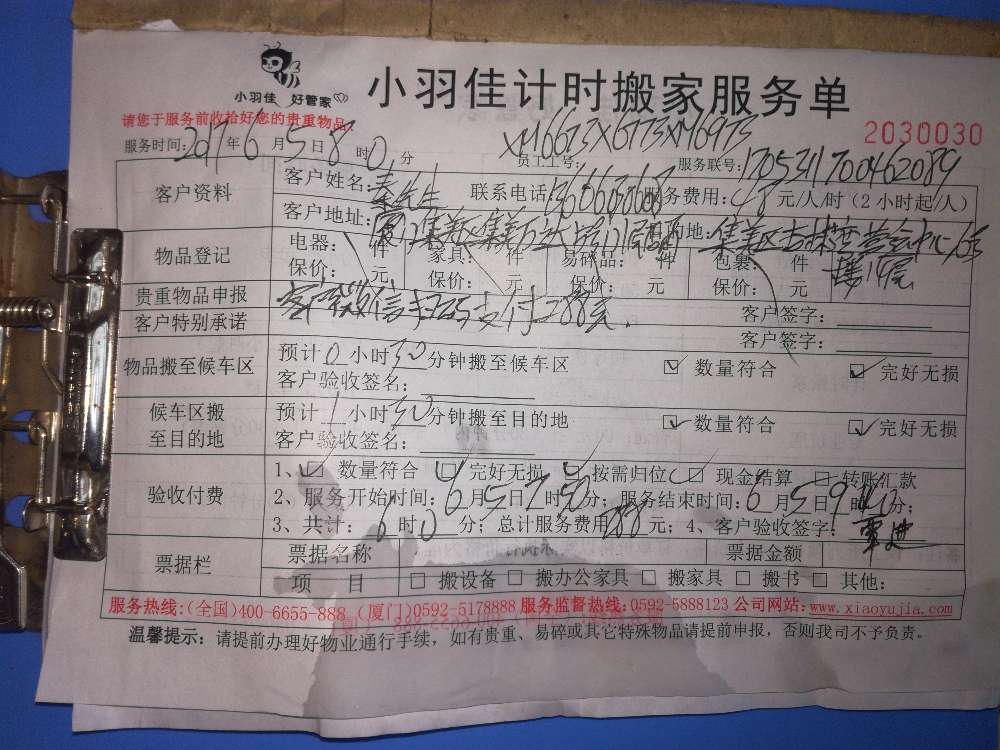 小羽佳 好管家
小羽佳计时搬家服务单
请您于服务前收拾好您的贵重物品!
2030030
服务时间: 2017年6月5日8时0分
员工工号: XM6673XG773XM6973
服务联号: 170531700462089
客户资料
客户姓名: 秦先生 联系电话: 服务费用: 48元/人/时(2小时起/人)
客户地址: 目的地:
物品登记
电器: 件 家具: 件 易碎品: 件 包裹: 件
保价: 元 保价: 元 保价: 元 保价: 元
楼19层
贵重物品申报 客户微信扫码支付288元. 客户签字:
客户特别承诺 客户签字:
物品搬至候车区 预计0小时30分钟搬至候车区 数量符合 完好无损
客户验收签名:
候车区搬至目的地 预计1小时30分钟搬至目的地 数量符合 完好无损
客户验收签名:
验收付费
1、数量符合 完好无损 按需归位 现金结算 转账汇款
2、服务开始时间: 6月5日7时50分; 服务结束时间: 6月5日9时 分;
3、共计: 6时0分; 总计服务费用288元; 4、客户验收签字:
票据栏 票据名称 票据金额
项 目 搬设备 搬办公家具 搬家具 搬书 其他:
服务热线:(全国)400-6655-888 (厦门)0592-5178888 服务监督热线:0592-5888123 公司网站: www.xiaoyujia.com
温馨提示: 请提前办理好物业通行手续, 如有贵重、易碎或其它特殊物品请提前申报, 否则我司不予负责。